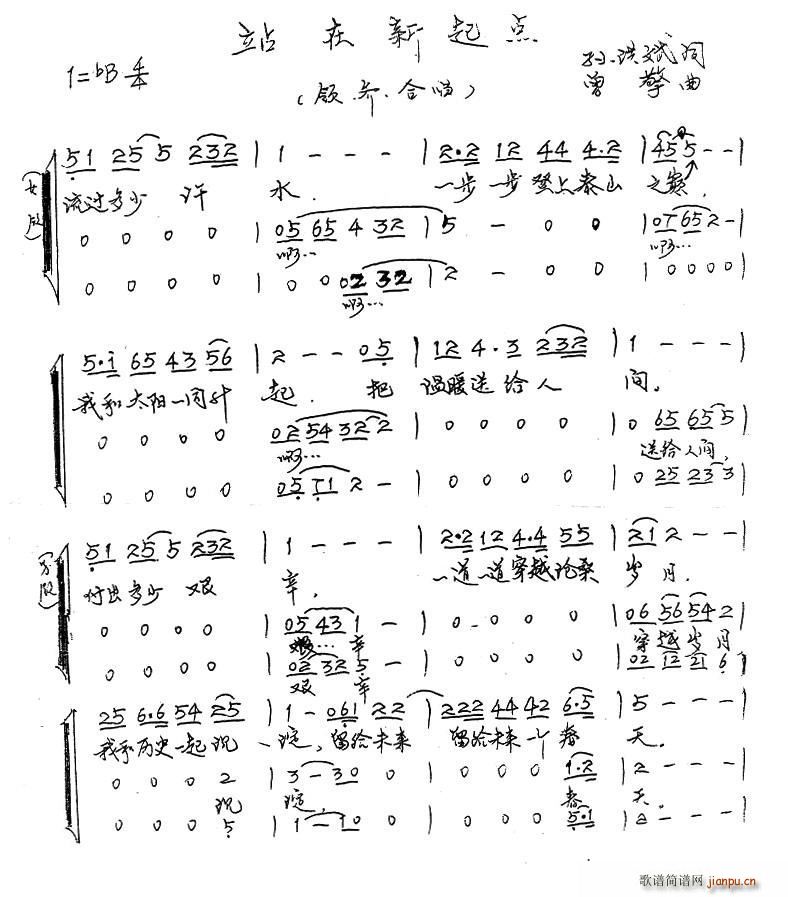 站在新起点
1=bB 4/4
(领、齐、合唱)
孙洪斌词
曾擎曲
(女领)
51 25 5 232 | 1 - - - | 2·2 12 44 4·2 | 45 5 - - |
流过多少 汗 水. 一步一步登上泰山之巅.
0 0 0 0 | 05 65 4 32 | 5 - 0 0 | 07 65 2 - |
啊… 啊…
0 0 0 0 | 0 0 02 32 | 2 - 0 0 | 0 0 0 0 |
啊…
5·i 65 43 56 | 2 - - 05 | 12 4·3 232 | 1 - - - |
我和太阳一同升 起. 把 温暖送给人 间.
0 0 0 0 | 02 54 32 2 | 0 0 0 0 | 0 65 65 5 |
啊… 送给人间,
0 0 0 0 | 05 71 2 - | 0 0 0 0 | 0 25 23 3 |
(男领)
51 25 5 232 | 1 - - - | 2·2 12 4·4 55 | 21 2 - - |
付出多少 艰 辛. 一道一道穿越沧桑 岁月.
0 0 0 0 | 05 43 1 - | 0 0 0 0 | 06 56 54 2 |
艰… 辛 穿越岁月
0 0 0 0 | 02 32 5 - | 0 0 0 0 | 02 12 21 6 |
艰 辛
25 6·6 54 25 | 1 - 061 22 | 222 44 42 6·5 | 5 - - - |
我和历史一起沉 淀, 留给未来 留给未来一个春 天.
0 0 0 2 | 3 - 30 0 | 0 0 0 1·2 | 2 - - - |
沉 淀, 春 天.
0 0 0 5 | 1 - 10 0 | 0 0 0 5·1 | 2 - - - |
歌谱简谱网
jianpu.cn